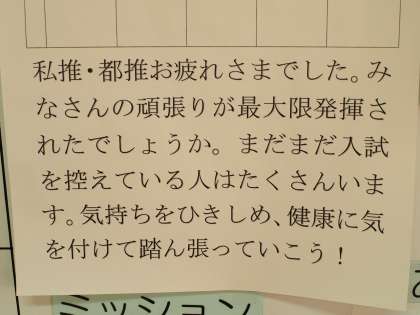 私推・都推お疲れさまでした。み
なさんの頑張りが最大限発揮さ
れたでしょうか。まだまだ入試
を控えている人はたくさんいま
す。気持ちをひきしめ、健康に気
を付けて踏ん張っていこう！
ミッション